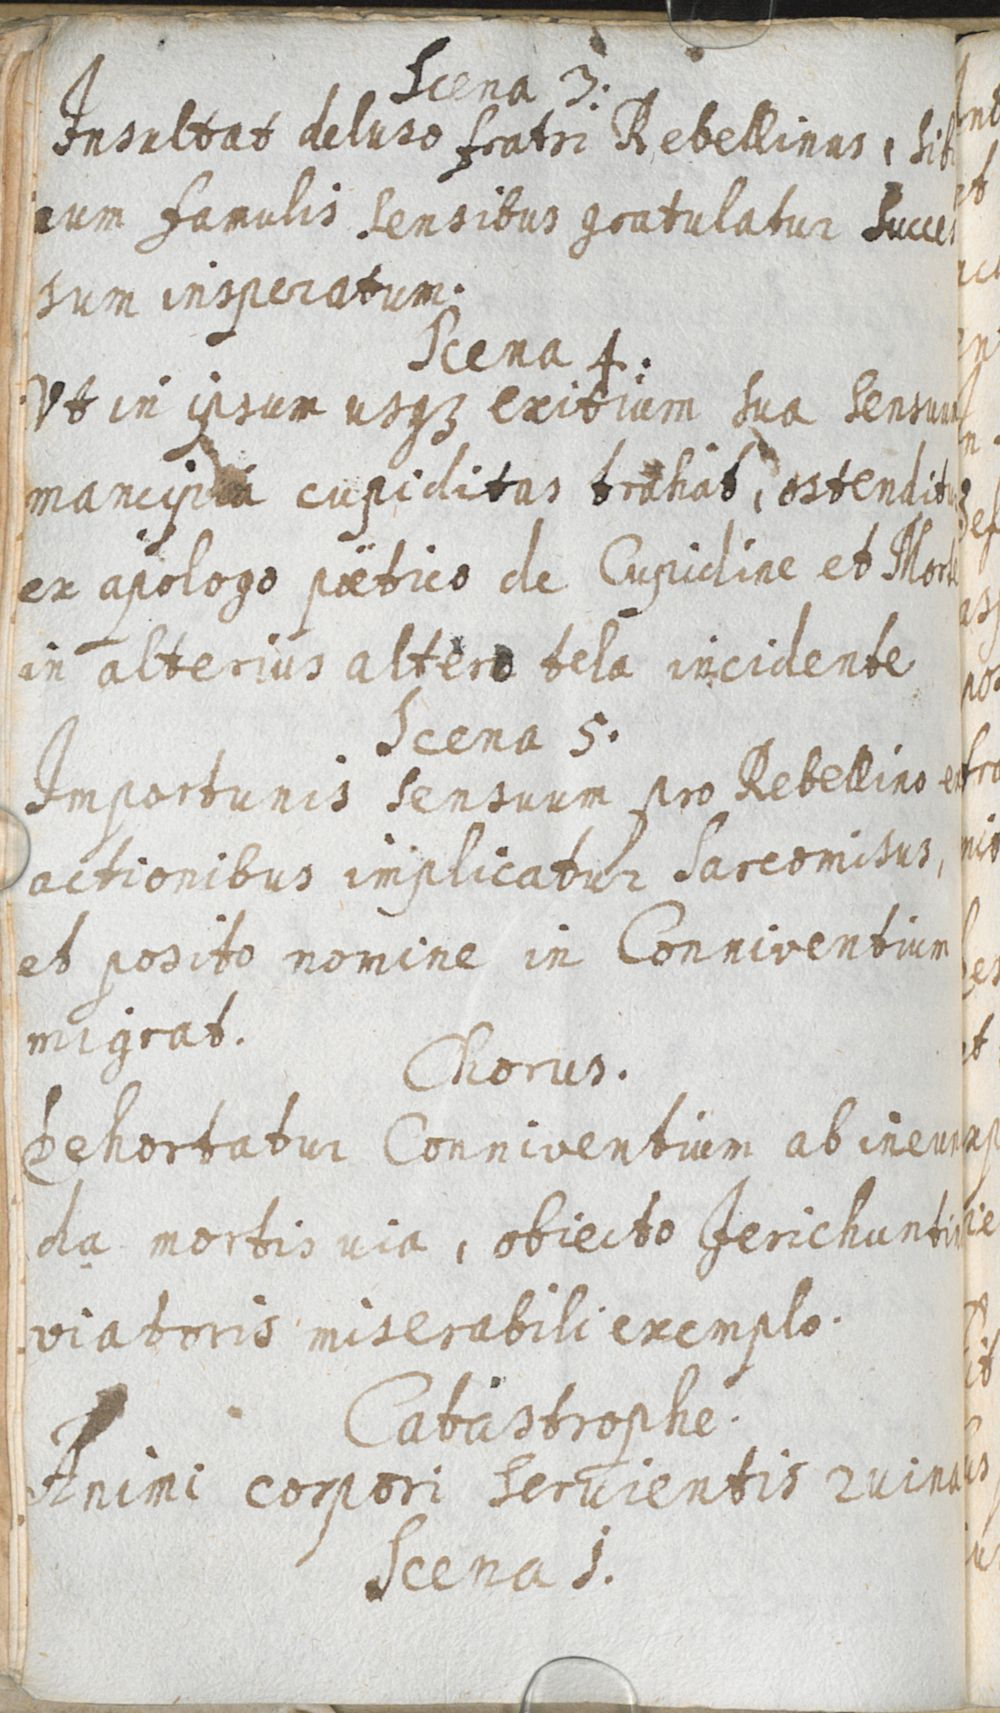 Scena 3.
Insultat deluso fratri Rebellinus, sibi
cum famulis sensibus gratulatur succes
sum insperatum.
Scena 4.
Vt in ipsum usqꝫ exitium sua sensuum
mancipia cupiditas trahat, ostenditur
ex apologo pöetico de Cupidine et Morte
in alterius altero tela incidente
Scena 5.
Importunis sensuum pro Rebellino ex
actionibus implicatur Sarcomisus,
et posito nomine in Conniventium
migrat.
Chorus.
Dehortatur Conniventium ab ineun
da mortis uia, obiecto Jerichuntini
viatoris miserabili exemplo.
Catastrophe.
Animi corpori seruientis ruina
Scena 1.